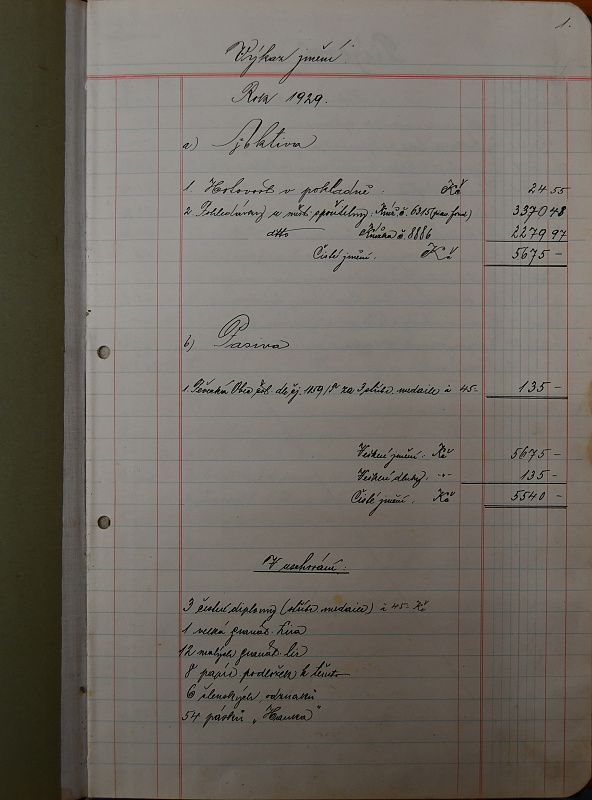 1.
Výkaz jmění
Rok 1929.
a) Aktiva
1. Hotovost v pokladně. Kč 24 55
2. Pohledávky u měst. spořitelny. Kniž. č. 6315 3370 48
dtto Knížka č. 8886 2279 97
Čisté jmění. Kč 5675 -
b) Pasiva
1. Pěvecká Obec čsl. dle čj. 1159 za 3 stříbr. medaile à 45.- 135 -
Veškeré jmění. Kč 5675 -
Veškeré dluhy. -"- 135 -
Čisté jmění. Kč 5540 -
V uschování:
3 čestné diplomy (stříbr. medaile) à 45.- Kč
1 velká granát. Lira
12 malých granát. lir
8 papír. podložek k těmto
6 členských odznaků
54 pásků „Hanka"